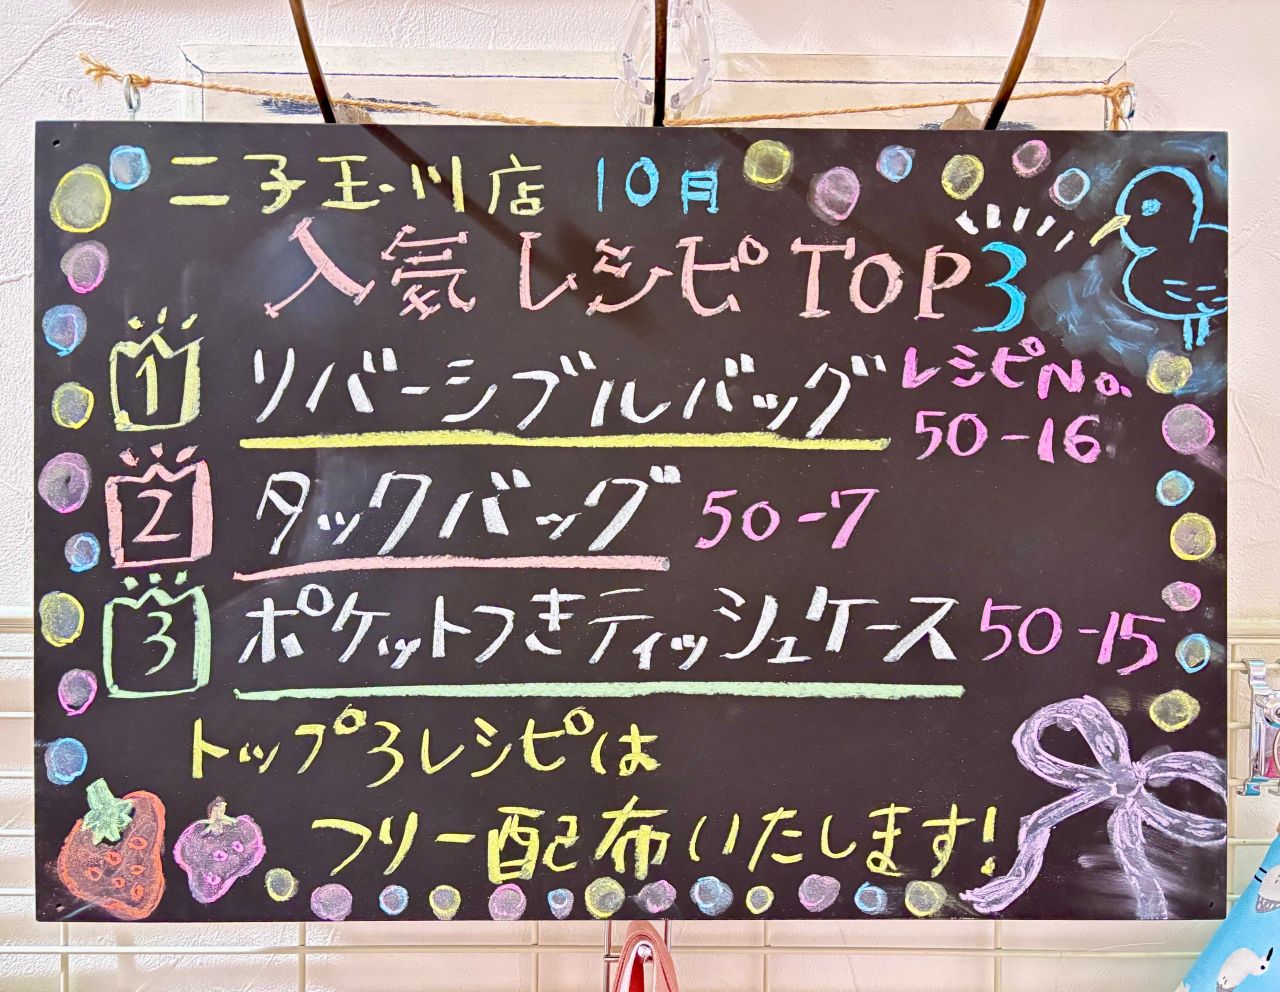 二子玉川店 10月
人気レシピTOP3
1 リバーシブルバッグ レシピNo. 50-16
2 タックバッグ 50-7
3 ポケットつきティッシュケース 50-15
トップ3レシピは
フリー配布いたします!